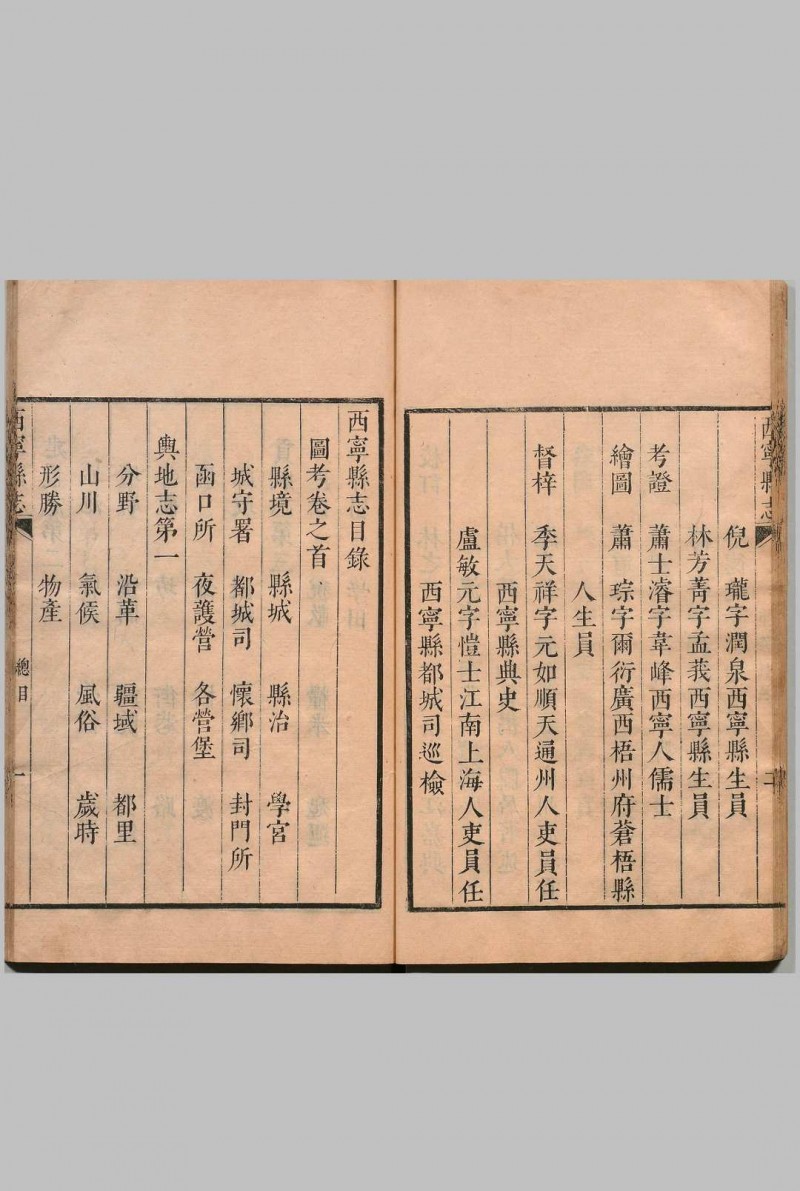 西寧縣志
二
倪　瓏字潤泉西寧縣生員
林芳菁字孟莪西寧縣生員
考證　蕭士濬字韋峰西寧人儒士
繪圖　蕭　琮字爾衍廣西梧州府蒼梧縣
人生員
督梓　季天祥字元如順天通州人吏員任
西寧縣典史
盧敏元字愷士江南上海人吏員任
西寧縣都城司巡檢
西寧縣志目錄
圖考卷之首
縣境　縣城　縣治　學宮
城守署　都城司　懷鄉司　封門所
函口所　夜護營　各營堡
輿地志第一
分野　沿革　疆域　都里
山川　氣候　風俗　歲時
形勝　物產
西寧縣志
總目
一